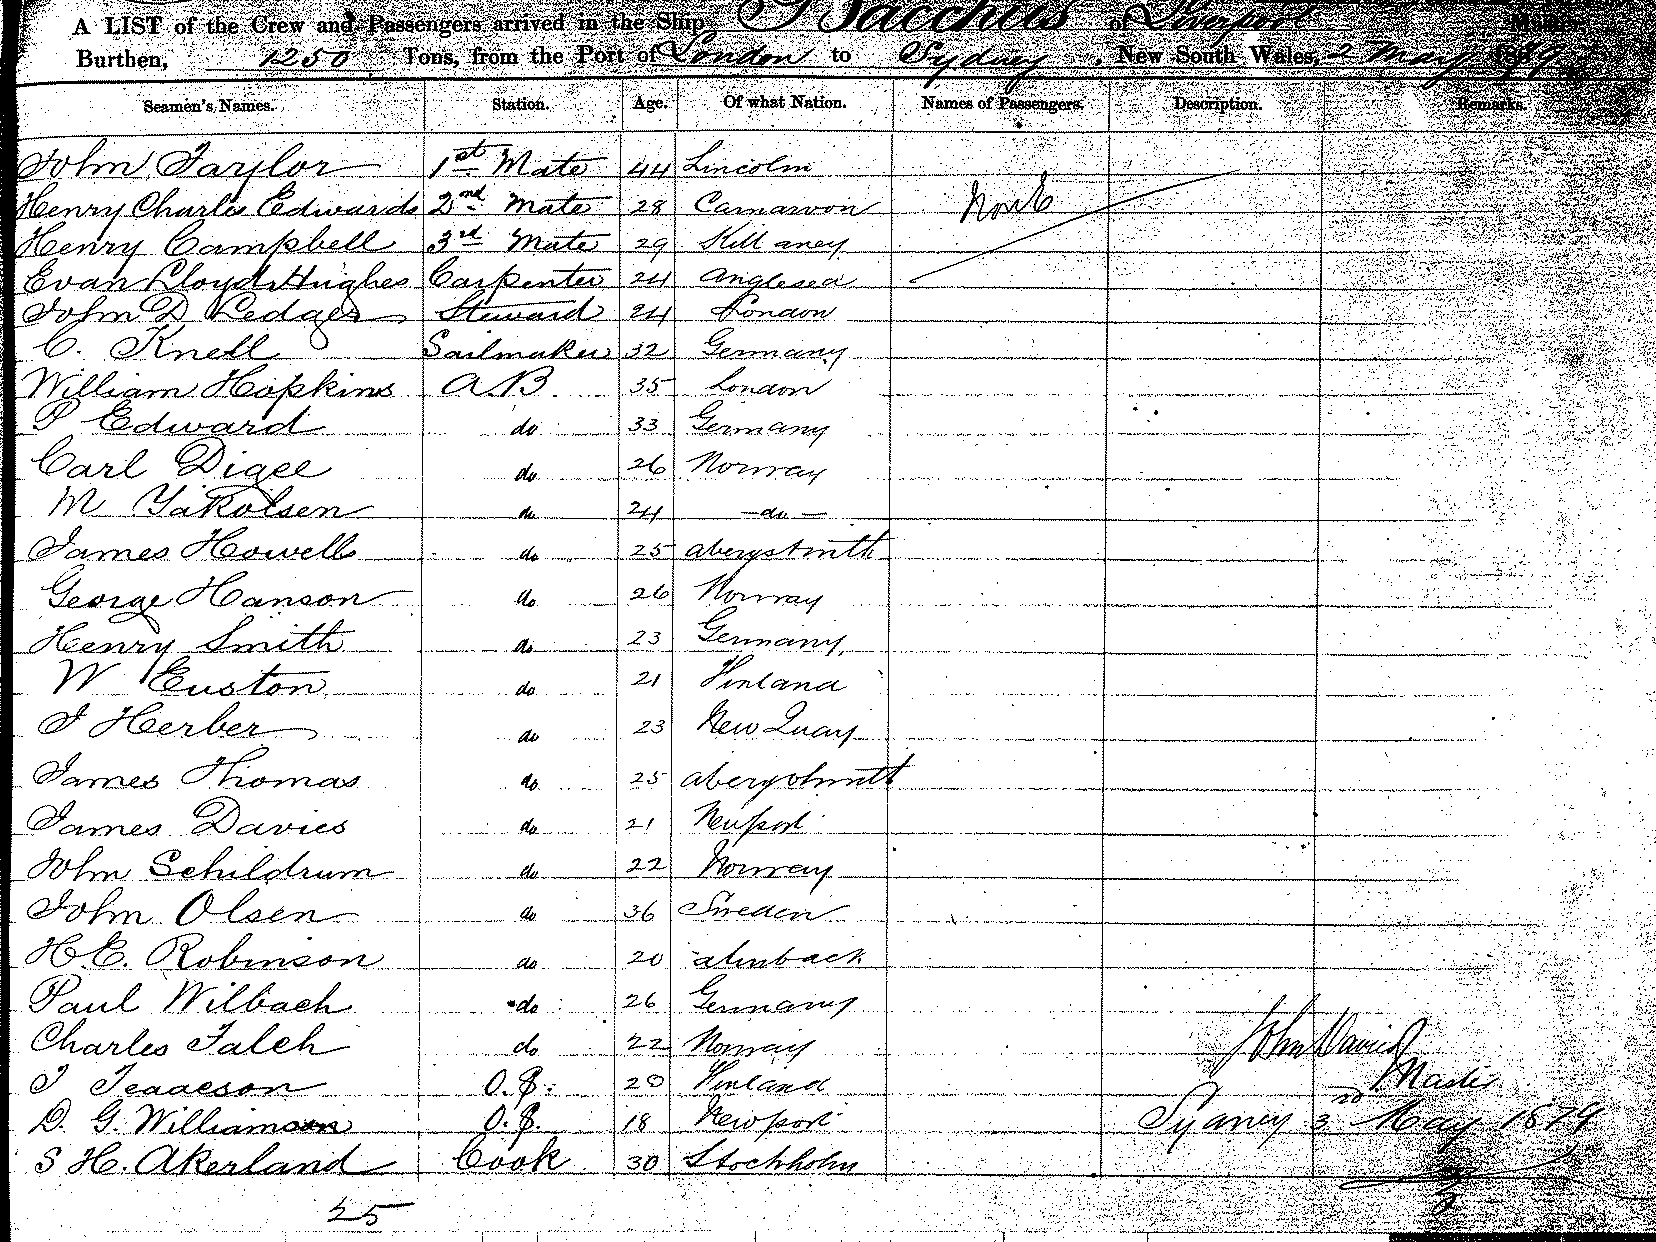 A LIST of the Crew and Passengers arrived in the Ship Bacchus of Liverpool
Burthen, 1250 Tons, from the Port of London to Sydney, New South Wales, 2 May 1879
Seamen's Names. Station. Age. Of what Nation. Names of Passengers. Description. Remarks.
John Taylor 1st Mate 44 Lincolm
Henry Charles Edwards 2nd Mate 28 Carnarvon None
Henry Campbell 3rd Mate 29 Kill aney
Evan Lloyd Hughes Carpenter 24 Anglesea
John D Ledger Steward 24 London
C. Knell Sailmaker 32 Germany
William Hopkins AB 35 London
P Edward do 33 Germany
Carl Digee do 26 Norway
M Yakolsen do 24 -do-
James Howells do 25 aberystwith
George Hanson do 26 Norway
Henry Smith do 23 Germany
W Euston do 21 Finland
J Herber do 23 New Quay
James Thomas do 25 aberystwith
James Davies do 21 Newport
John Schildrum do 22 Norway
John Olsen do 36 Sweden
H.E. Robinson do 20
Paul Wilbach do 26 Germany
Charles Falch do 22 Norway
John David
J Isaacson O.S. 20 Finland
Master
D. G. Williamson O.S. 18 Newport
Sydney 3rd May 1879
S H. Akerland Cook 30 Stockholm
25